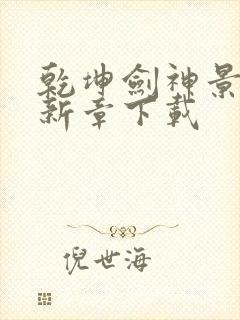 乾坤劍神景
新章下載
倪世海